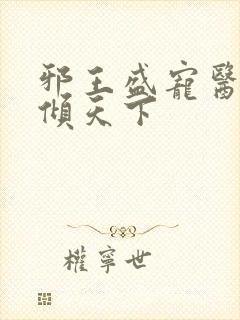 邪王盛寵醫
傾天下
權寧世